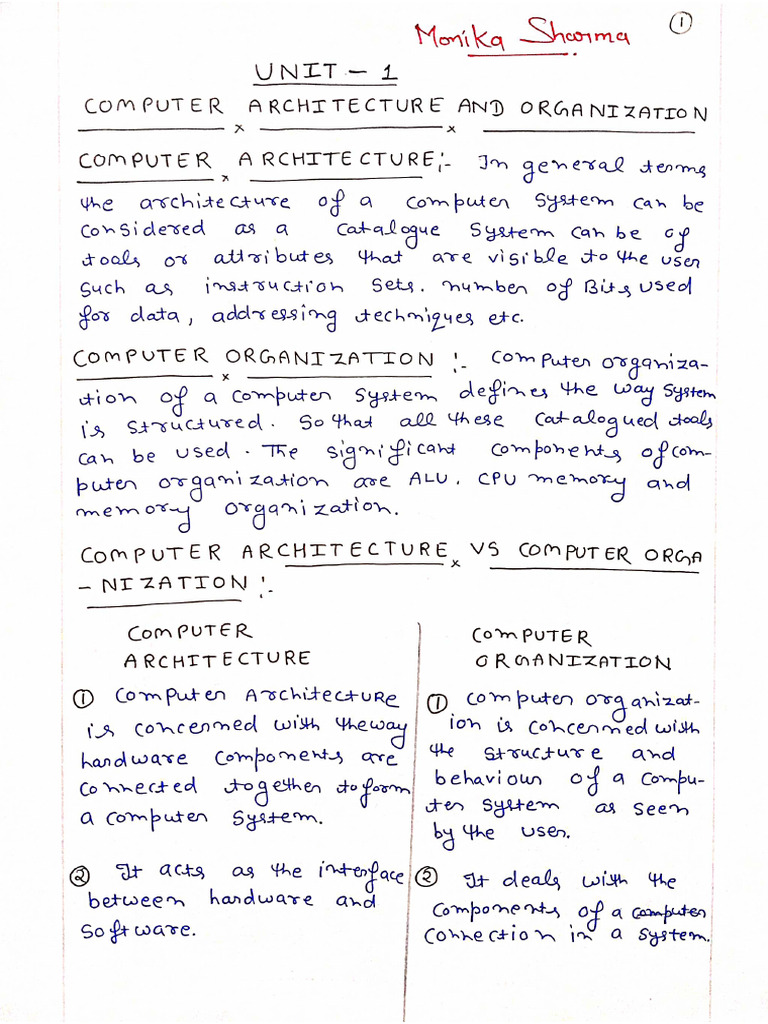 Monika Sharma
1
UNIT - 1
COMPUTER ARCHITECTURE AND ORGANIZATION
COMPUTER ARCHITECTURE:- In general terms
the architecture of a computer system can be
considered as a catalogue system can be of
tools or attributes that are visible to the user
such as instruction sets. number of Bits used
for data, addressing techniques etc.
COMPUTER ORGANIZATION :- Computer organiza-
tion of a computer system defines the way system
is structured. So that all these catalogued tools
can be used. The significant components of com-
puter organization are ALU. CPU memory and
memory organization.
COMPUTER ARCHITECTURE VS COMPUTER ORGA
- NIZATION :-
COMPUTER
ARCHITECTURE
① Computer Architecture
is concerned with the way
hardware components are
connected together to form
a computer system.
② It acts as the interface
between hardware and
software.
COMPUTER
ORGANIZATION
① Computer organizat-
ion is concerned with
the structure and
behaviour of a compu-
ter system as seen
by the user.
② It deals with the
components of a computer
connection in a system.